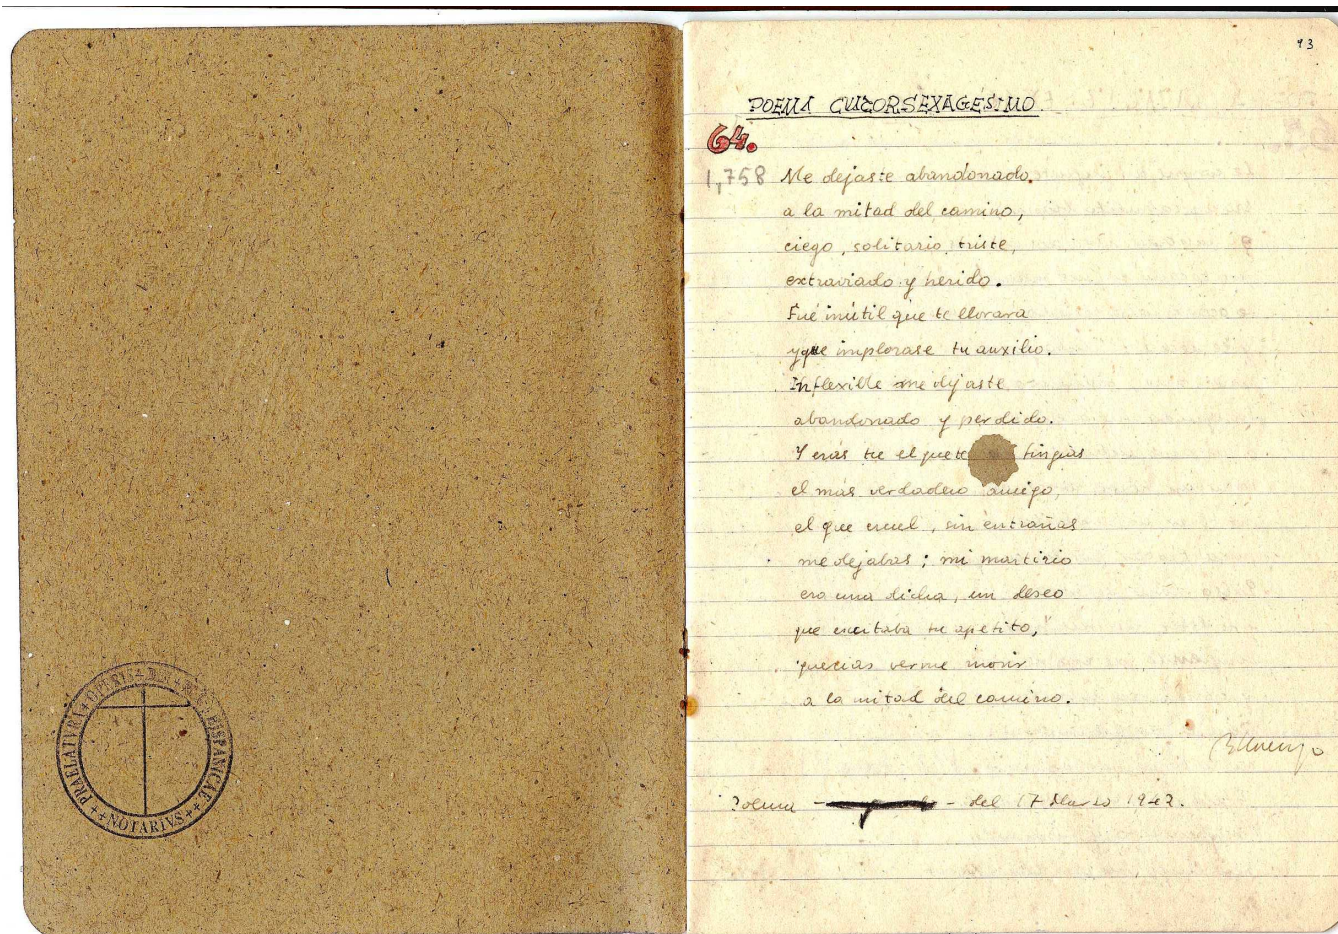 + PRAELATVRA + OPERIS + DEI + R. C. HISPANICAE +
++NOTARIVS++
93
POEMA CUATORSEXAGESIMO.
64.
1,758 Me dejaste abandonado.
a la mitad del camino,
ciego, solitario, triste,
extraviado y herido.
Fué inútil que te llorara
y que implorase tu auxilio.
Inflexible me dejaste
abandonado y perdido.
Y eras tu el que te fingías
el más verdadero amigo,
el que cruel, sin entrañas
me dejabas; mi martirio
era una dicha, un deseo
que excitaba tu apetito,
querías verme morir
a la mitad del camino.
Poema - - del 17 Marzo 1942.